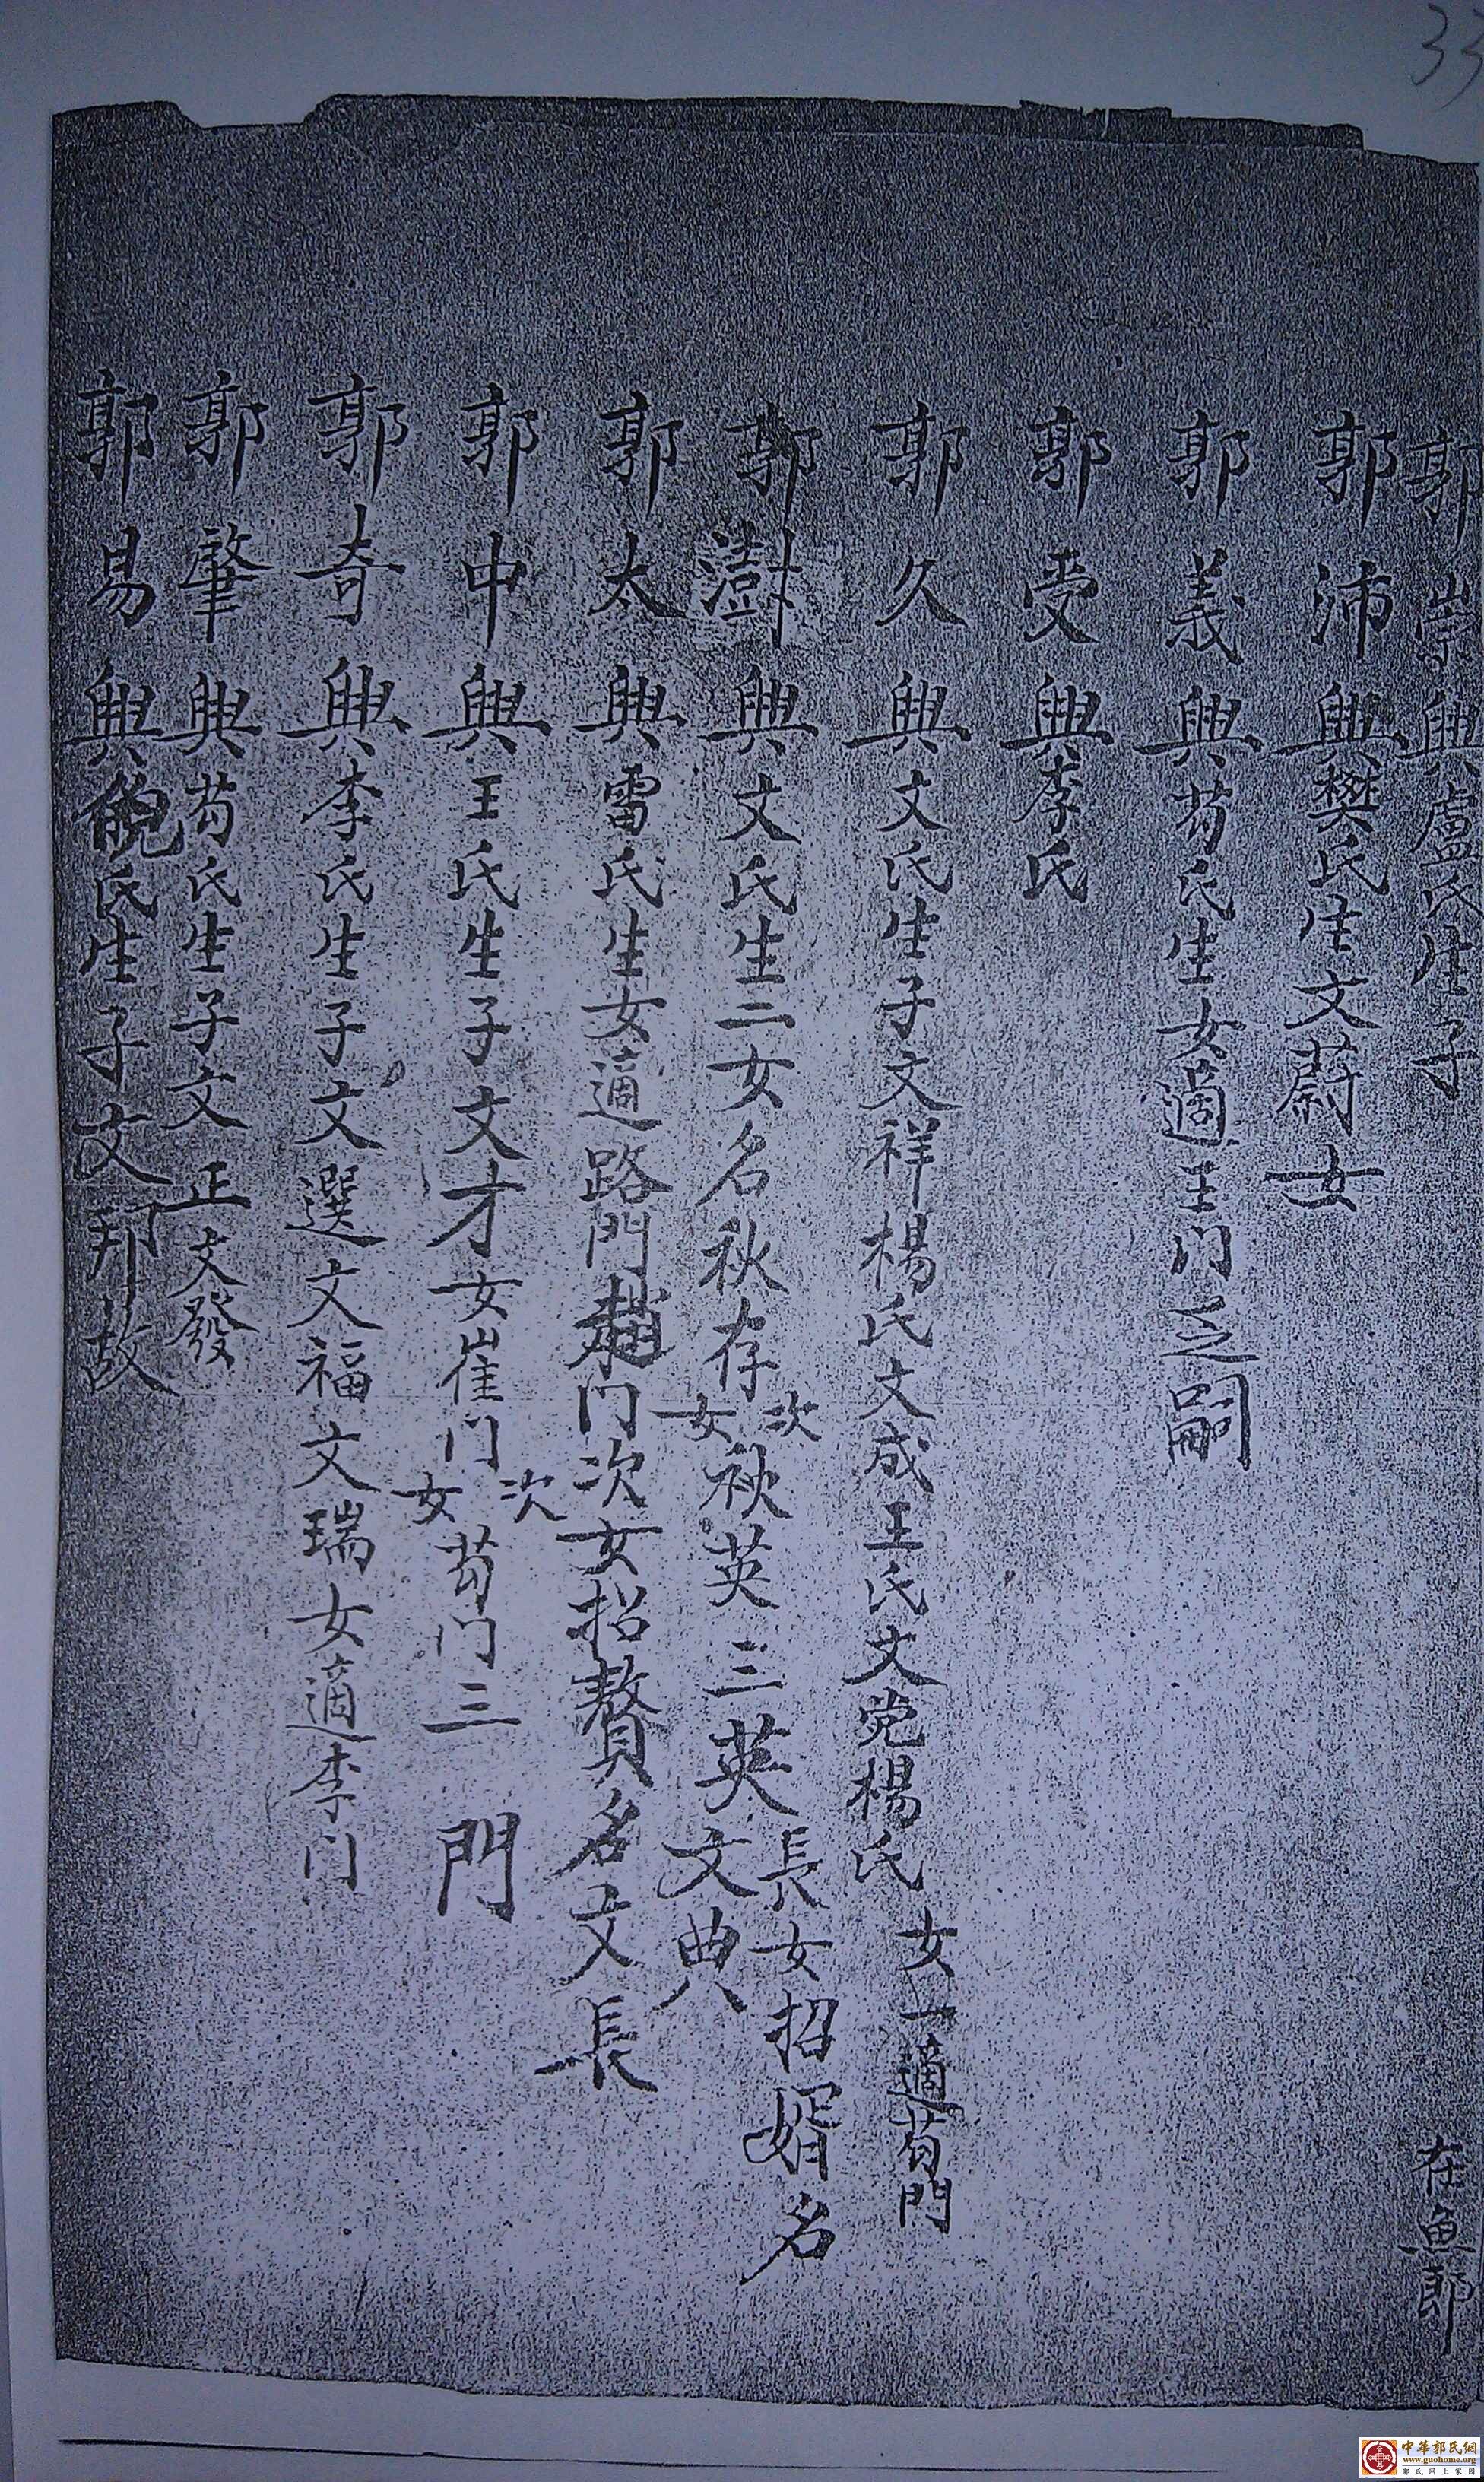 33
郭崇興盧氏生子
在魚郎
郭沛興樊氏生文蔚女
郭義興芶氏生女適王门乏嗣
郭受興李氏
郭久興文氏生子文祥楊氏文成王氏文党楊氏女一適苟門
郭澍興文氏生二女名秋存次女秋英三英長女招婿名文典
郭太興雷氏生女適路門趙门次女招贅名文長
郭中興王氏生子文才女崔门次女芶门三門
郭奇興李氏生子文選文福文瑞女適李门
郭肇興芶氏生子文正文發
郭易興氏生子文邦故
中華郭氏網
www.guohome.org
郭氏网上家園